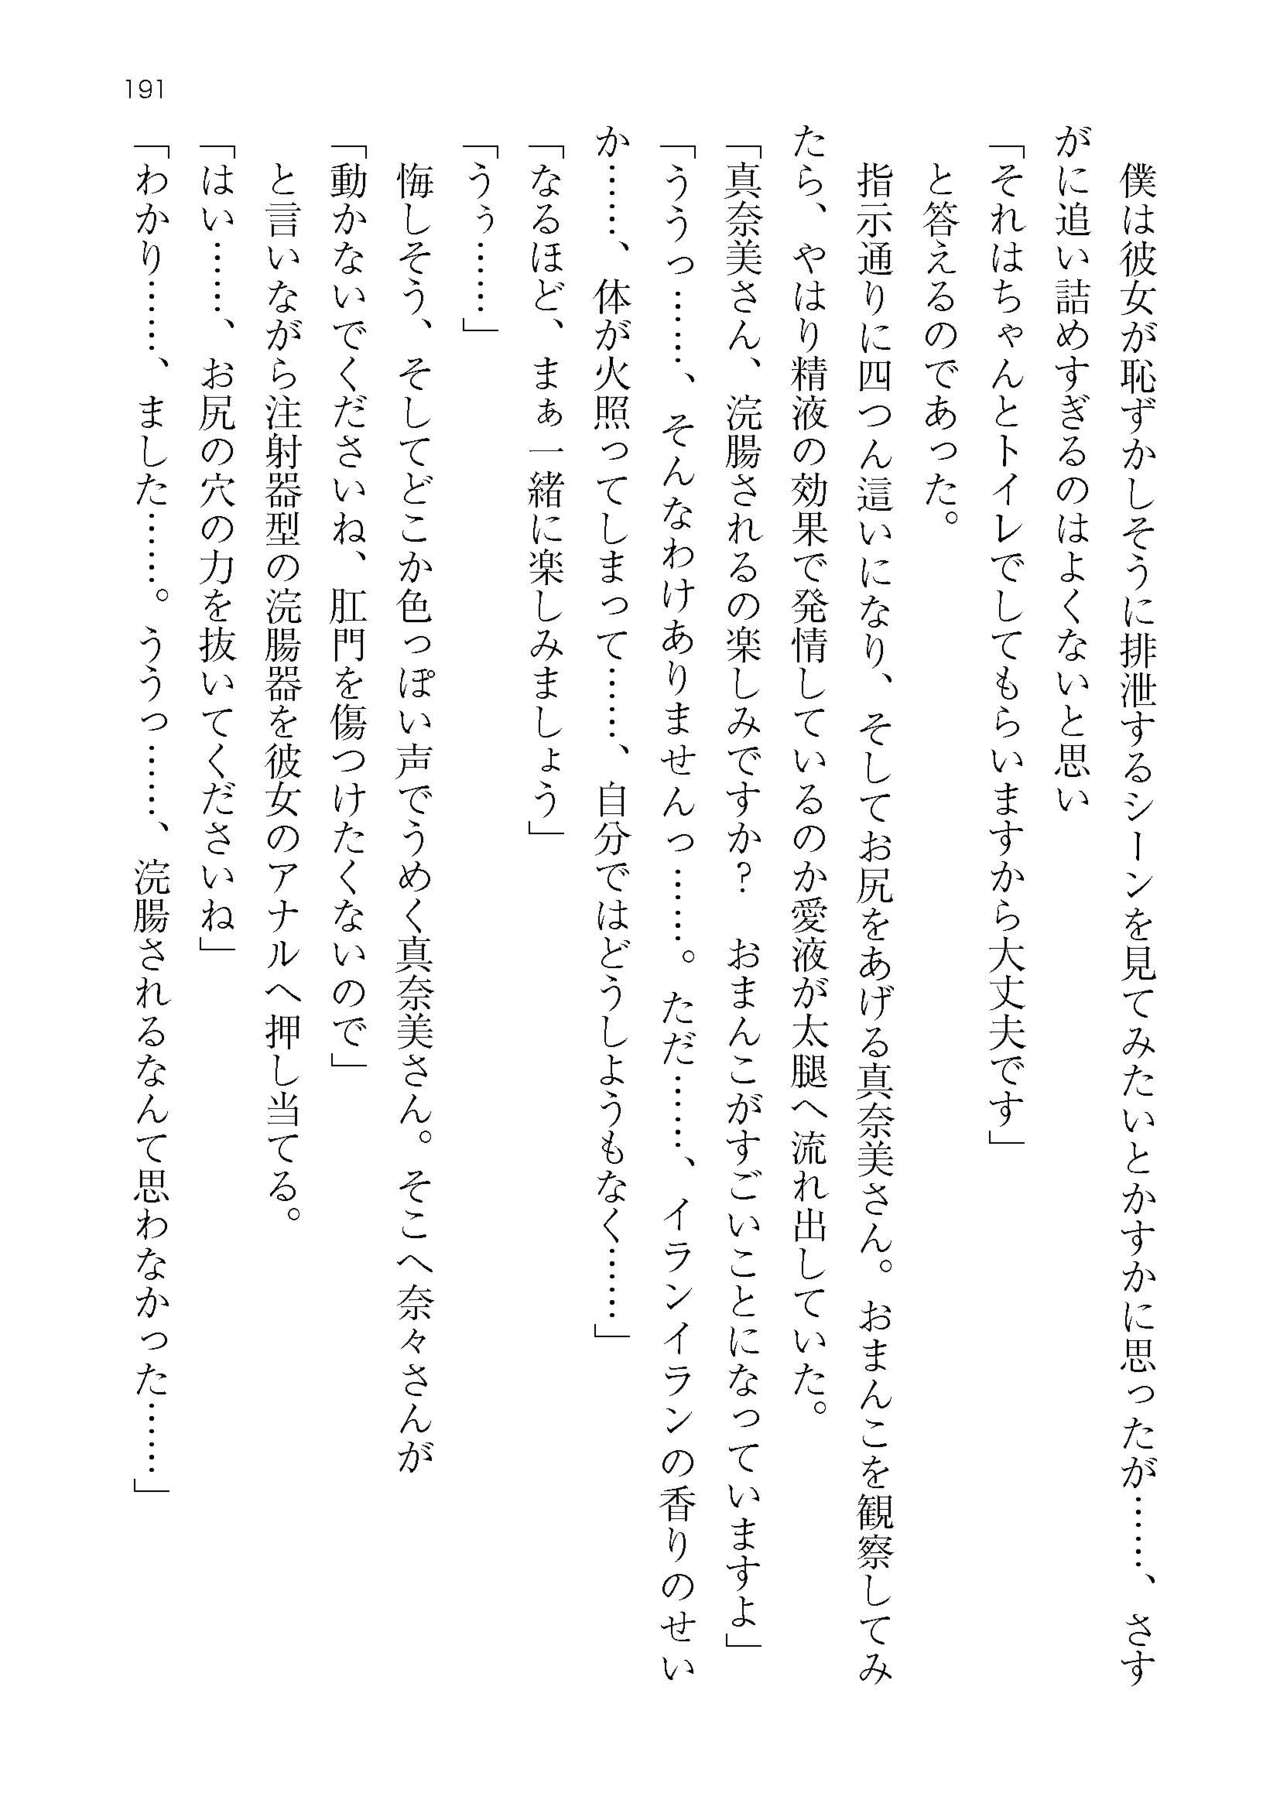 191
僕は彼女が恥ずかしそうに排泄するシーンを見てみたいとかすかに思ったが……、さす
がに追い詰めすぎるのはよくないと思い
「それはちゃんとトイレでしてもらいますから大丈夫です」
と答えるのであった。
指示通りに四つん這いになり、そしてお尻をあげる真奈美さん。おまんこを観察してみ
たら、やはり精液の効果で発情しているのか愛液が太腿へ流れ出していた。
「真奈美さん、浣腸されるの楽しみですか？　おまんこがすごいことになっていますよ」
「ううっ……、そんなわけありませんっ……。ただ……、イランイランの香りのせい
か……、体が火照ってしまって……、自分ではどうしようもなく……」
「なるほど、まぁ一緒に楽しみましょう」
「うぅ……」
悔しそう、そしてどこか色っぽい声でうめく真奈美さん。そこへ奈々さんが
「動かないでくださいね、肛門を傷つけたくないので」
と言いながら注射器型の浣腸器を彼女のアナルへ押し当てる。
「はい……、お尻の穴の力を抜いてくださいね」
「わかり……、ました……。ううっ……、浣腸されるなんて思わなかった……」